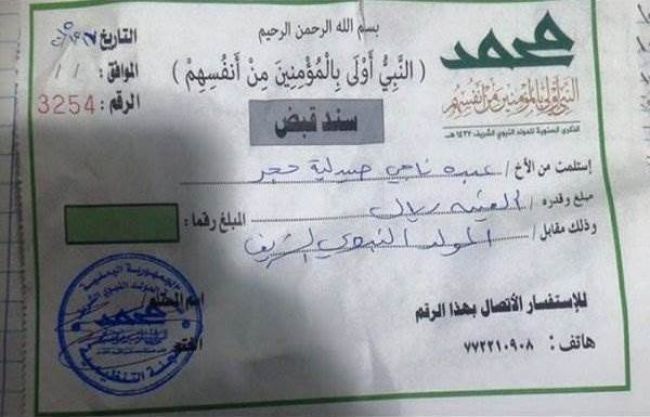 بسم الله الرحمن الرحيم
محمد
النبي أولى بالمؤمنين من أنفسهم
الذكرى السنوية للمولد النبوي الشريف ١٤٣٧هـ
( النَّبِيُّ أَوْلَى بِالْمُؤْمِنِينَ مِنْ أَنفُسِهِمْ )
التاريخ
الموافق: / /
الرقم: 3254
سند قبض
إستلمت من الأخ / عبده ناجي صيدلية حجر
مبلغ وقدره /
ريال
المبلغ رقما:
وذلك مقابل / المولد النبوي الشريف
للإستفسار الأتصال بهذا الرقم
هاتف: ٧٧٢٢١٠٩٠٨
اسم المستلم/
الجمهورية اليمنية
محمد